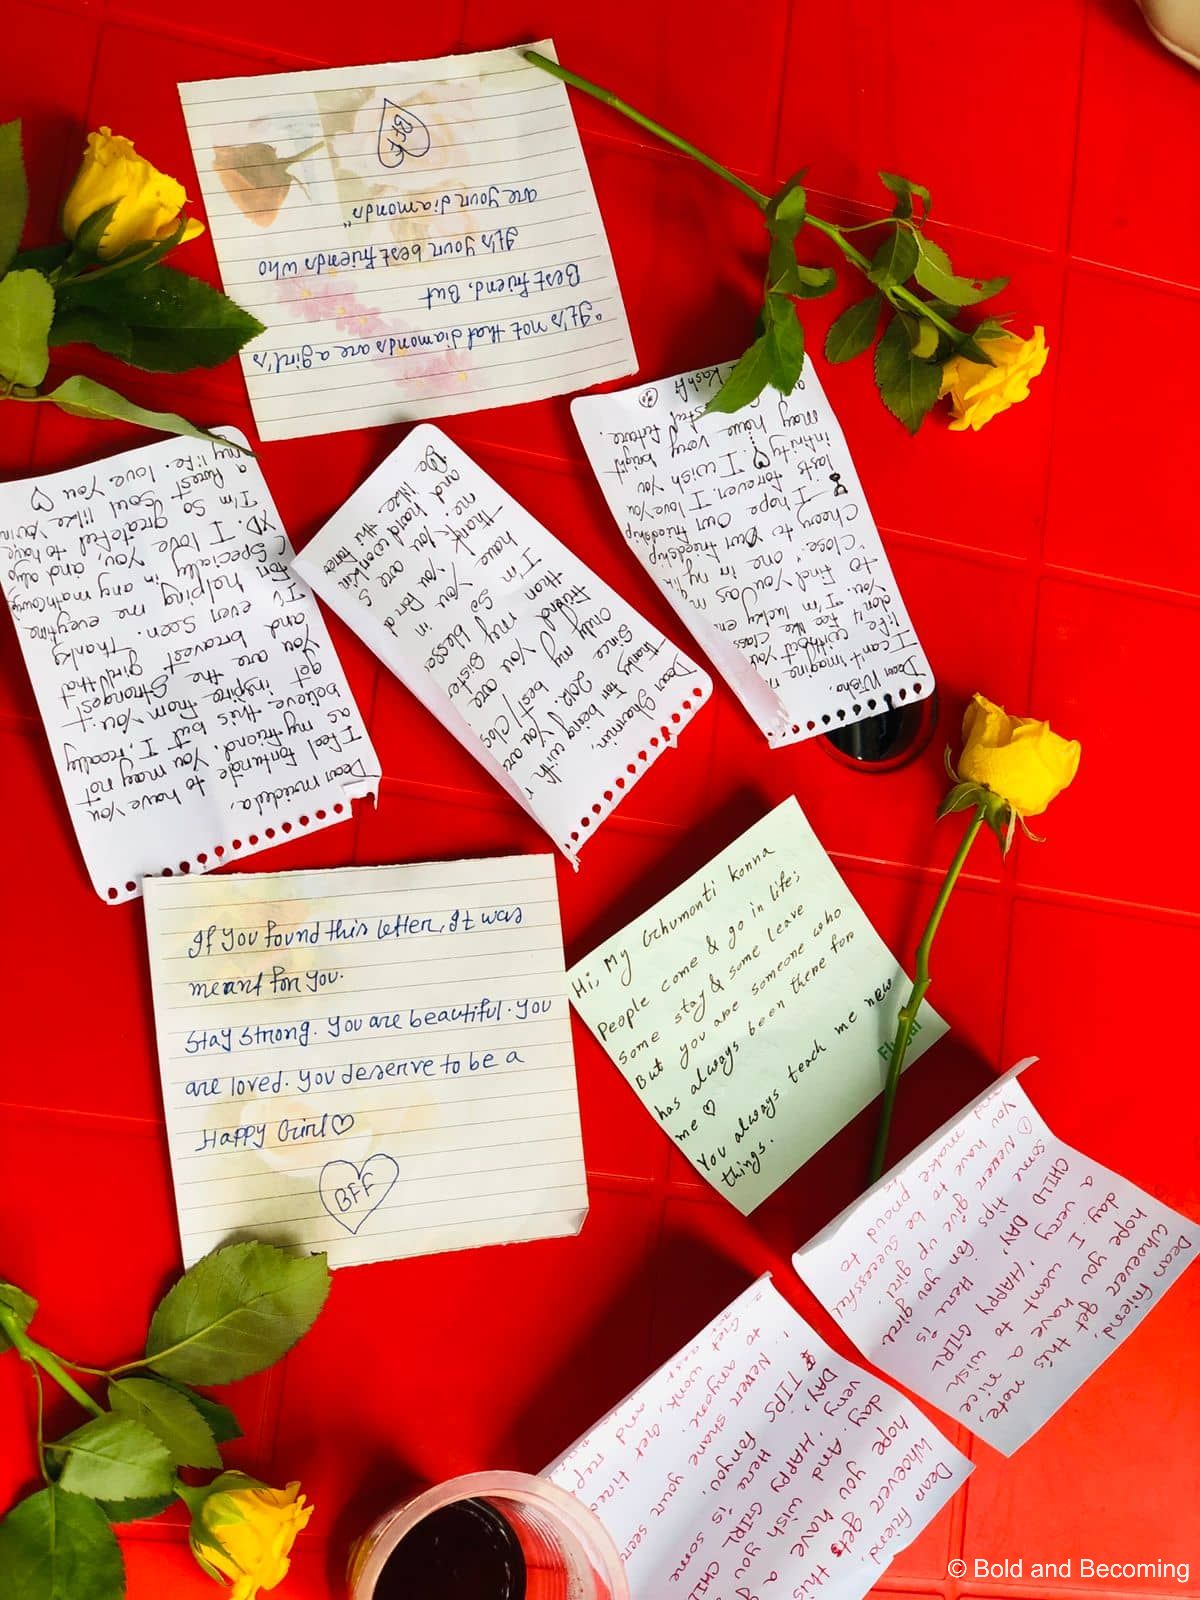 "It's not that diamonds are a girl's
Best friend. But
It's your best friends who
are your diamonds"
BFF
Dear
I feel fortunate
to have you
as my friend. You may not
believe this but I really
get inspire from you.
You are the strongest
and bravest girl that
I'v even seen. Thanks
for helping me everytime
(specially in any math
XD. I love you, and also
I'm so grateful to have
a Purest soul like you in
my life. love You ♡
Dear
Thanks for being with
since I
only my best/clos
friend You are
than my sister
I'm so blesse
have you in
thank you for
me. You are
and hard workin
like this
Be
Dear Nisha,
I can't imagine my
life without you
don't
You. I'm lucky
to find you as
close. one in my
Cheery to our friendship
I hope our friendship
lasts forever. I love you
infinity
may have very bright
future.
I wish you
If you found this letter, It was
meant for you.
Stay strong. you are beautiful. you
are loved. you deserve to be a
Happy Girl ♡
BFF
Hi, My Ghumonti konna
People come & go in life;
some stay & some leave
But you are someone who
has always been there for
me ♡
You always teach me new
things.
Dear friend,
whoever get this note,
hope you have a nice
day. I want to wish
a very 'HAPPY GIRL
CHILD DAY' Here is
some tips for you girl.
① Never give up girl.
You have to be successful
and make proud to
Dear friend,
whoever gets this
hope you have a
day. And wish you a
very 'HAPPY GIRL CHILD
DAY' Here is some
TIPS for you.
1. Never share your
to anyone.